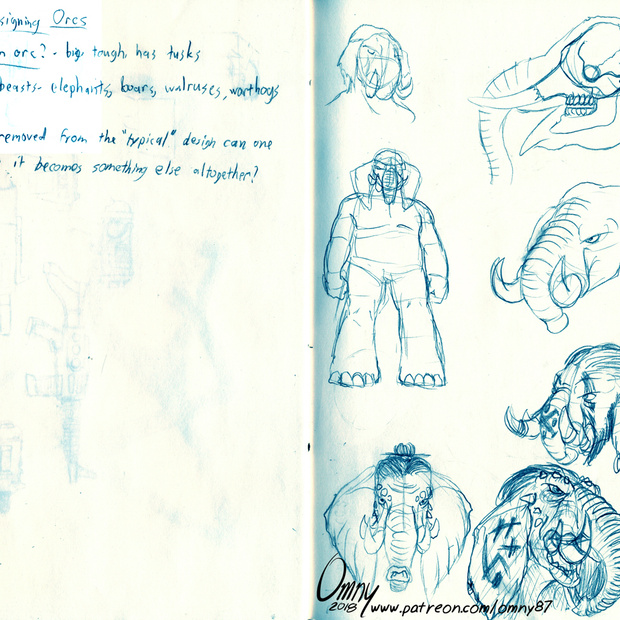 signing Orcs
n orc? - big, tough, has tusks
beasts - elephants, boars, walruses, warthogs
removed from the "typical" design can one
it becomes something else altogether?
Omny
2018 www.patreon.com/omny87